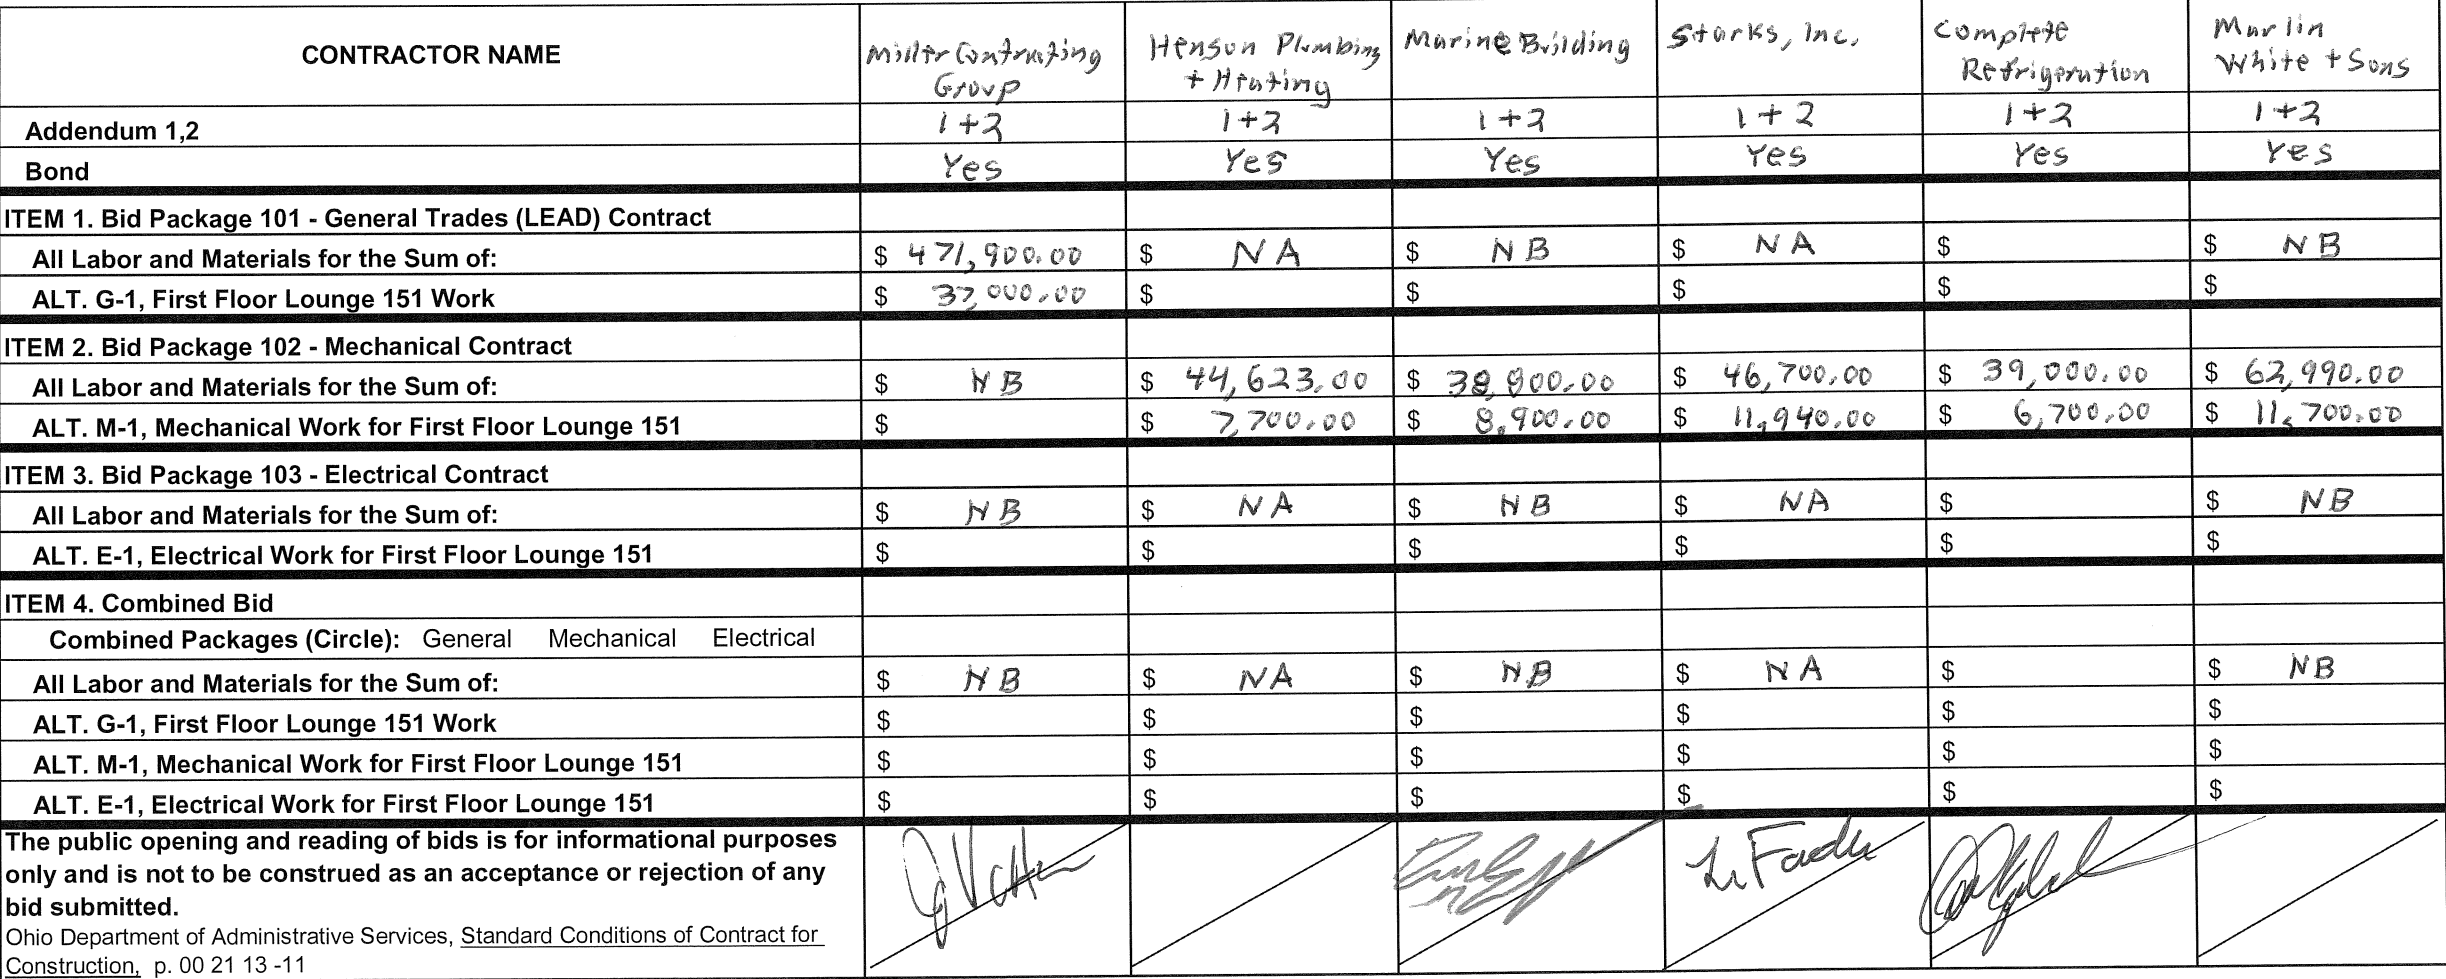 CONTRACTOR NAME Miller Contracting Group Henson Plumbing + Heating Marine Building Starks, Inc. Complete Refrigeration Marlin White + Sons
Addendum 1,2 1+2 1+2 1+2 1+2 1+2 1+2
Bond Yes Yes Yes Yes Yes Yes
ITEM 1. Bid Package 101 - General Trades (LEAD) Contract
All Labor and Materials for the Sum of: $ 471,900.00 $ NA $ NB $ NA $ $ NB
ALT. G-1, First Floor Lounge 151 Work $ 37,000.00 $ $ $ $ $
ITEM 2. Bid Package 102 - Mechanical Contract
All Labor and Materials for the Sum of: $ NB $ 44,623.00 $ $ 46,700.00 $ 39,000.00 $ 62,990.00
ALT. M-1, Mechanical Work for First Floor Lounge 151 $ $ 7,700.00 $ 8,900.00 $ 11,940.00 $ 6,700.00 $ 11,700.00
ITEM 3. Bid Package 103 - Electrical Contract
All Labor and Materials for the Sum of: $ NB $ NA $ NB $ NA $ $ NB
ALT. E-1, Electrical Work for First Floor Lounge 151 $ $ $ $ $ $
ITEM 4. Combined Bid
Combined Packages (Circle): General Mechanical Electrical
All Labor and Materials for the Sum of: $ NB $ NA $ NB $ NA $ $ NB
ALT. G-1, First Floor Lounge 151 Work $ $ $ $ $ $
ALT. M-1, Mechanical Work for First Floor Lounge 151 $ $ $ $ $ $
ALT. E-1, Electrical Work for First Floor Lounge 151 $ $ $ $ $ $
The public opening and reading of bids is for informational purposes
only and is not to be construed as an acceptance or rejection of any
bid submitted.
Ohio Department of Administrative Services, Standard Conditions of Contract for
Construction, p. 00 21 13 -11